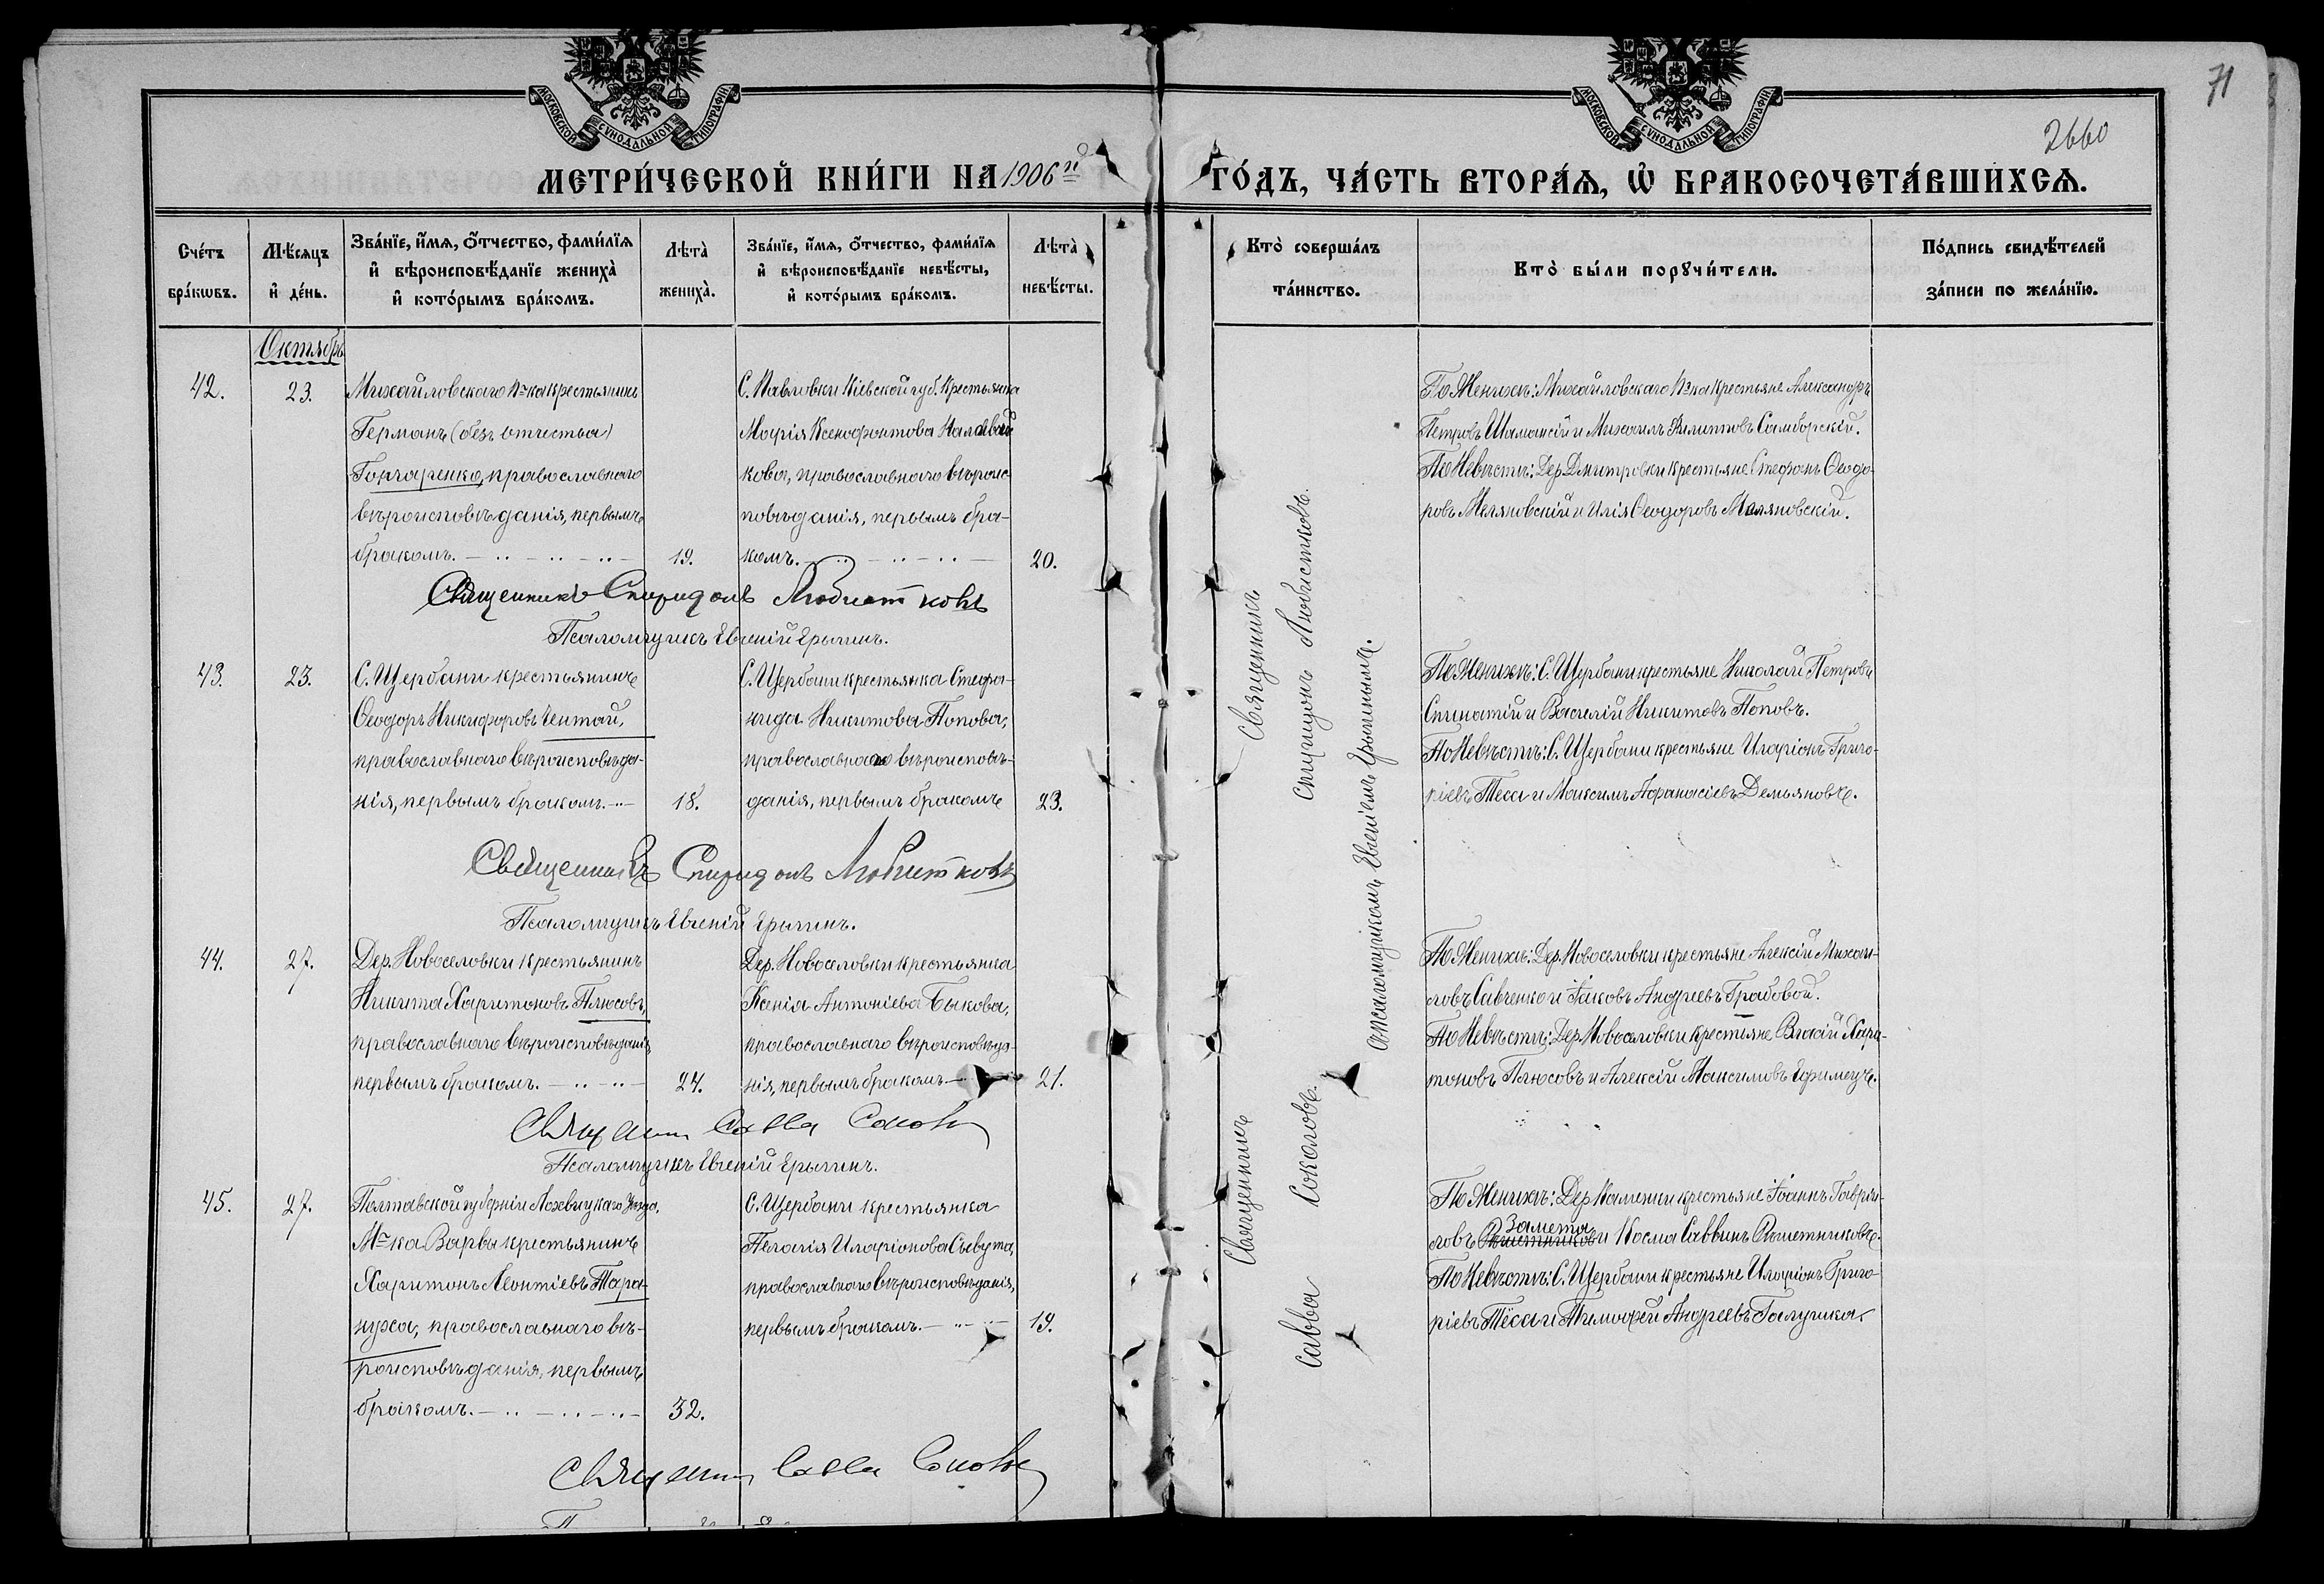 71
2660
МОСКОВСКОЙ СѴНОДАЛЬНОЙ ТИПОГРАФІИ
МОСКОВСКОЙ СѴНОДАЛЬНОЙ ТИПОГРАФІИ
МЕТРИ́ЧЕСКОЙ КНИ́ГИ НА 1906й ГО́ДЪ, ЧА́СТЬ ВТОРА́Ѧ, Ѡ҆ БРАКОСОЧЕТА́ВШИХСѦ.
Сче́тъ
бра́кѡвъ.
Мѣ́сѧцъ
и҆ де́нь.
Зва́нїе, и҆́мѧ, ѻ҆́тчество, фами́лїѧ
и҆ вѣроисповѣ́данїе жениха̀
и҆ кото́рымъ бра́комъ.
Лѣта̀
жениха̀.
Зва́нїе, и҆́мѧ, ѻ҆́тчество, фами́лїѧ
и҆ вѣроисповѣ́данїе невѣ́сты,
и҆ кото́рымъ бра́комъ.
Лѣта̀
невѣ́сты.
Кто̀ соверша́лъ
та́инство.
Кто̀ бы́ли порꙋчи́тели.
По́дпись свидѣ́телей
за́писи по жела́нїю.
Октябрь
42.
23.
Михайловскаго п-ка крестьянинъ
Германъ (безъ отчества)
Гончаренко, православнаго
вѣроисповѣданія, первымъ
бракомъ.
19.
С. Павловки Кіевской губ. крестьянка
Марія Ксенофонтова
кова, православнаго вѣроис-
повѣданія, первымъ бра-
комъ.
20.
По Женихѣ: Михайловскаго п-ка крестьяне Александръ
Петровъ Шаманскій и Михаилъ Филиповъ Самборскій.
По Невѣстѣ: Дер. Дмитровки крестьяне Стефанъ Ѳеодо-
ровъ Меляновскій и Илія Ѳеодоровъ Маляновскій.
Священникъ Спиридонъ Любистковъ
Псаломщикъ Евгеній Ерыгинъ.
43.
23.
С. Щербани крестьянинъ
Ѳеодоръ Никифоровъ Чентай,
православнаго вѣроисповѣда-
нія, первымъ бракомъ.
18.
С. Щербани крестьянка Стефа-
нида Никитова Попова,
православнаго вѣроисповѣ-
данія, первымъ бракомъ
23.
По Женихѣ: С. Щербани крестьяне Николай Петровъ
Спинатій и Василій Никитовъ Поповъ.
По Невѣстѣ: С. Щербани крестьяне Иларіонъ Григо-
ріевъ Тёса и Максимъ Аѳанасіевъ Демьяновъ.
Священникъ Спиридонъ Любистковъ
Псаломщикъ Евгеній Ерыгинъ.
44.
27.
Дер. Новоселовки крестьянинъ
Никита Харитоновъ Плюсовъ,
православнаго вѣроисповѣданія
первымъ бракомъ.
24.
Дер. Новоселовки крестьянка
Ксенія Антоніева Быкова,
православнаго вѣроисповѣда-
нія, первымъ бракомъ
21.
По Женихѣ: Дер. Новоселовки крестьяне Алексій Михаи-
ловъ Савченко и Іаковъ Андреевъ Грабовой.
По Невѣстѣ: Дер. Новоселовки крестьяне Власій Хари-
тоновъ Плюсовъ и Алексій Максимовъ Ефимецъ.
Священникъ Савва Соколовъ
Псаломщикъ Евгеній Ерыгинъ.
45.
27.
Полтавской губерніи Лохвицкаго уѣзда,
М-ка Варвы крестьянинъ
Харитонъ Леонтіевъ Тара-
нуха, православнаго вѣ-
роисповѣданія, первымъ
бракомъ.
32.
С. Щербани крестьянка
Пелагія Иларіонова Сывута,
православнаго вѣроисповѣданія,
первымъ бракомъ.
19.
По Женихѣ: Дер. Каменки крестьяне Іоаннъ Гаврии-
Замета
ловъ Рѣшетниковъ и Косма Саввинъ Рѣшетниковъ.
По Невѣстѣ: С. Щербани крестьяне Иларіонъ Григо-
ріевъ Тёса и Тимоѳей Андреевъ Галушка.
Священникъ Савва Соколовъ
Священникъ
Спиридонъ Любистковъ.
Священникъ
Савва Соколовъ.
съ псаломщикомъ Евгеніемъ Ерыгинымъ.